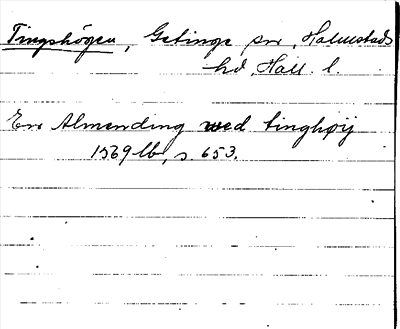 Tingshögen, Getinge sn, Halmstads
hd, Hall. l.
En Almending wed tinghøij
1569 lb, s. 653.